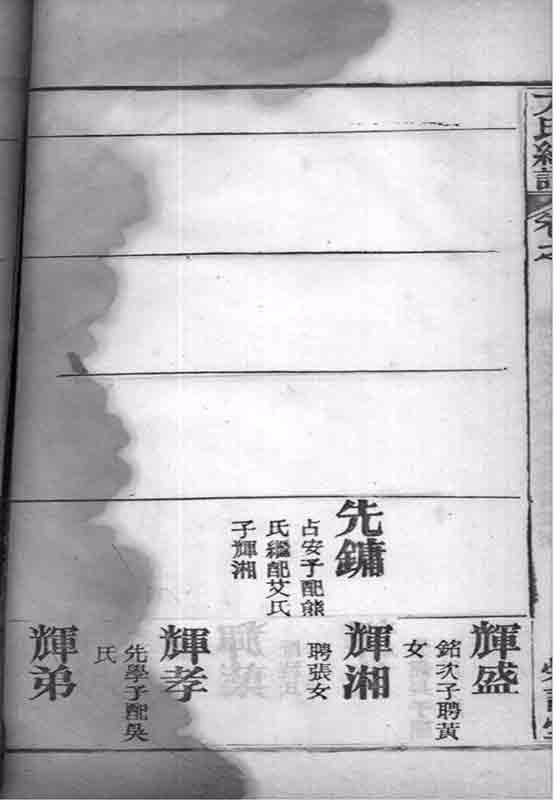 先鏞
占安子配熊
氏繼配艾氏
子輝湘
輝盛
銘次子聘黃
女
輝湘
聘張女
輝孝
先學子配吳
氏
輝弟